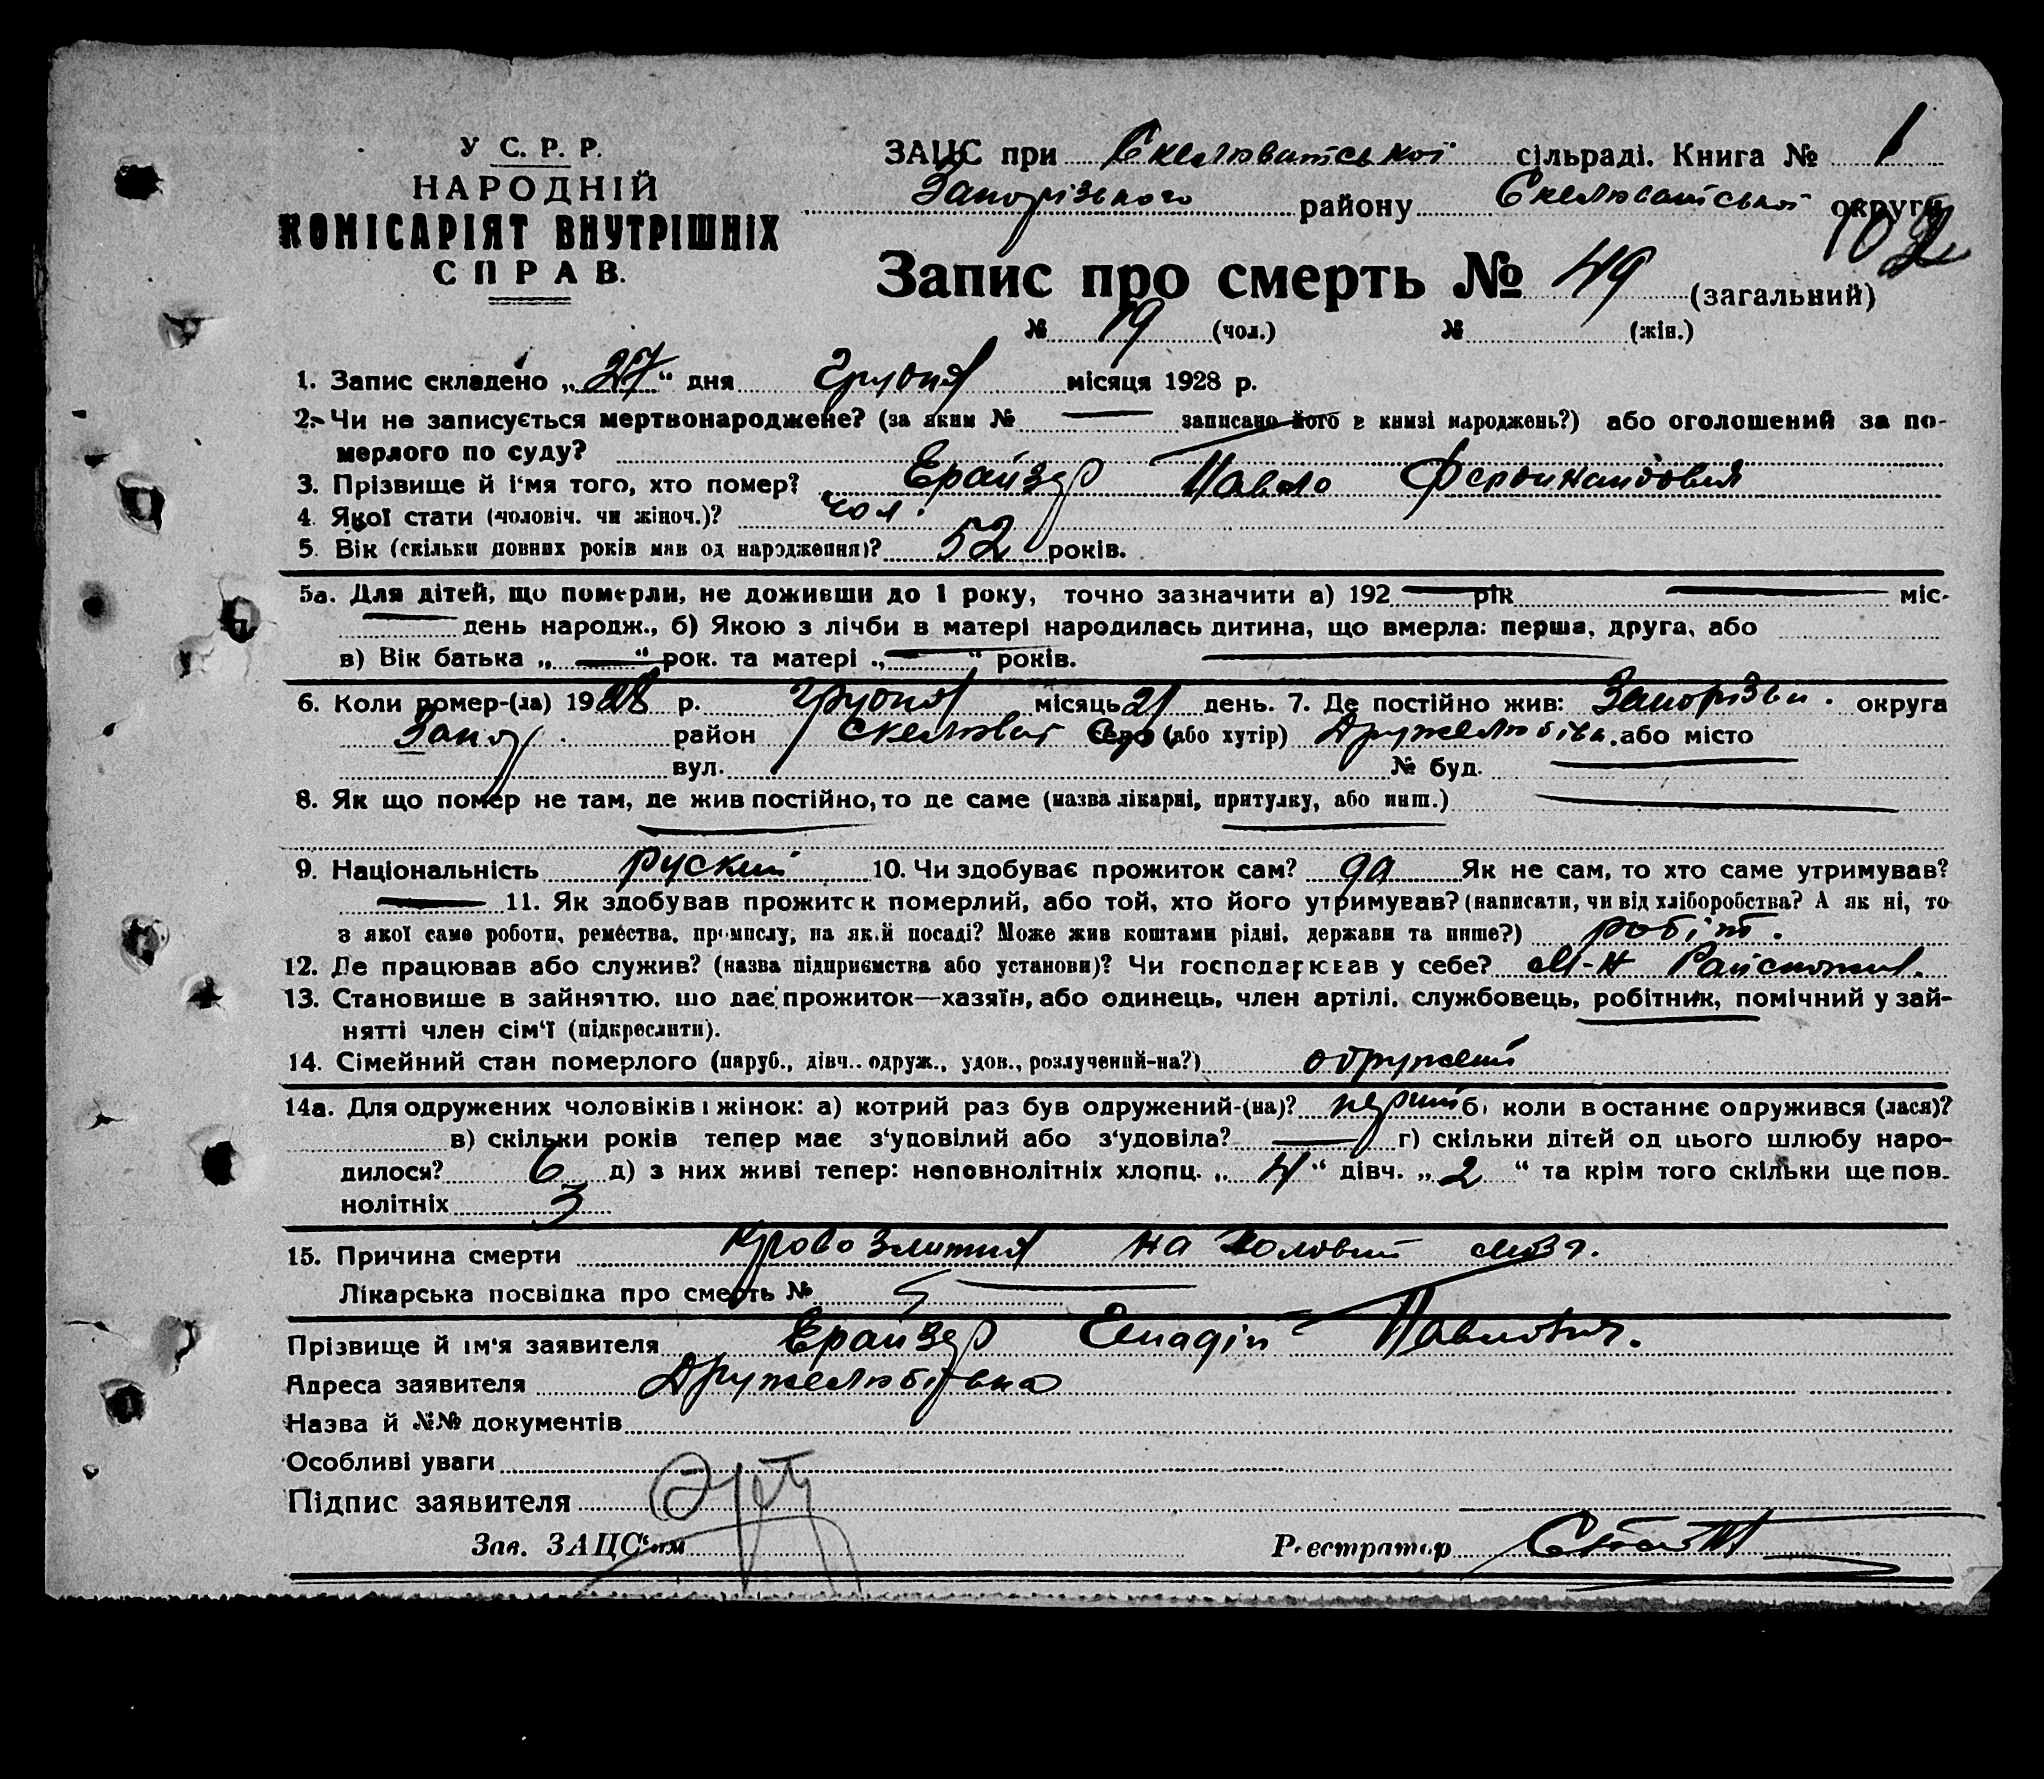 У С. Р. Р.
НАРОДНІЙ
КОМІСАРІЯТ ВНУТРІШНІХ
СПРАВ.
ЗАЦС при Скелюватської сільраді. Книга № 1
Запорізького району Скелюватської округи
102
Запис про смерть № 49 (загальний)
№ 19 (чол.) № (жін.)
1. Запис складено „27“ дня Грудня місяця 1928 р.
2. Чи не записується мертвонароджене? (за яким № — записано його в книзі народжень?) або оголошений за по-
мерлого по суду?
3. Прізвище й і‘мя того, хто помер? Ерайзер Павло Фердинандович
4. Якої стати (чоловіч. чи жіноч.)? чол.
5. Вік (скільки повних років мав од народження)? 52 років.
5а. Для дітей, що померли, не доживши до 1 року, точно зазначити а) 192 — рік — міс-
— день народж., б) Якою з лічби в матері народилась дитина, що вмерла: перша, друга, або
в) Вік батька „ — “ рок. та матері „ — “ років.
6. Коли помер-(ла) 1928 р. грудня місяць 21 день. 7. Де постійно жив: Запорізьк. округа
Запор. район Скелюват село (або хутір) Дружелюбівк. або місто
вул. № буд. —
8. Як що помер не там, де жив постійно, то де саме (назва лікарні, притулку, або инш.) —
9. Національність руский 10. Чи здобуває прожиток сам? да Як не сам, то хто саме утримував?
— 11. Як здобував прожиток померлий, або той, хто його утримував? (написати, чи від хліборобства? А як ні, то
з якої саме роботи, ремества, промислу, на якій посаді? Може жив коштами рідні, держави та инше?) робіт.
12. Де працював або служив? (назва підприємства або установи)? Чи господарював у себе? М-н
13. Становише в зайняттю, шо дає прожиток—хазяїн, або одинець, член артілі, службовець, робітник, помічний у зай-
нятті член сім‘ї (підкреслити).
14. Сімейний стан померлого (паруб., дівч.. одруж., удов., розлучений-на?) одружений
14а. Для одружених чоловіків і жінок: а) котрий раз був одружений-(на)? перший б) коли в останнє одружився (лася)?
в) скільки років тепер має з‘уповілий або з‘удовіла? — г) скільки дітей од цього шлюбу наро-
дилося? 6 д) з них живі тепер: неповнолітніх хлопц. „4“ дівч. „2“ та крім того скільки ще пов-
нолітніх 3
15. Причина смерти Крово злиттия на Головний мозг.
Лікарська посвідка про смерть № —
Прізвище й ім‘я заявителя Ерайзер Павлович.
Адреса заявителя Дружелюбівка
Назва й №№ документів
Особливі уваги
Підпис заявителя
Зав. ЗАЦС‘ом Реєстратор